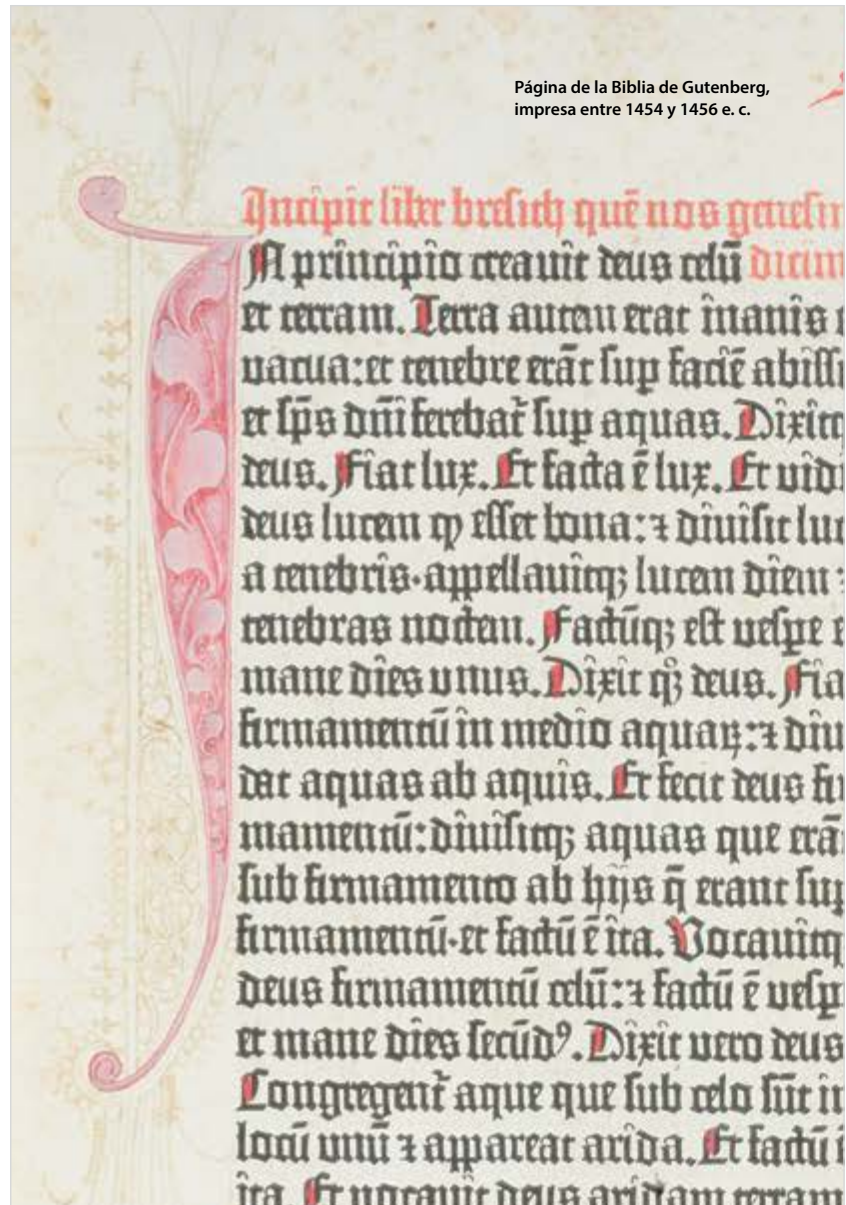 Página de la Biblia de Gutenberg,
impresa entre 1454 y 1456 e. c.
Incipit liber bresich quē nos genesim
In principio creavit deus celū dicim
et terram. Terra autem erat inanis
vacua: et tenebre erāt sup faciē abissi
et sp̄s dn̄i ferebat᷑ sup aquas. Dixitq
deus. Fiat lux. Et facta ē lux. Et vidi
deus lucem ꝙ esset bona: ⁊ divisit luc
a tenebris. appellavitq; lucem diem ⁊
tenebras noctem. Factūq; est vespe e
mane dies unus. Dixit qꝫ deus. Fia
firmamentū in medio aquaꝝ: ⁊ divi
dat aquas ab aquis. Et fecit deus fir
mamentū: divisitq; aquas que erā
sub firmamento ab hijs q̄ erant sup
firmamentū. et factū ē ita. Vocavitq
deus firmamentū celū: ⁊ factū ē vesp
et mane dies secūdꝰ. Dixit vero deus
Congregent᷑ aque que sub celo sūt in
locū unū ⁊ appareat arida. Et factū ē
ita. Et vocavit deus aridam terram